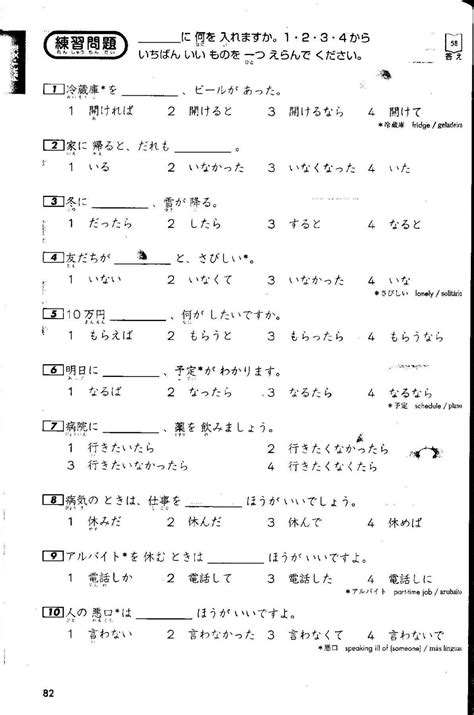 練習問題
＿＿＿に 何を 入れますか。1・2・3・4から
いちばん いい ものを 一つ えらんで ください。
58
答え
1 冷蔵庫*を＿＿＿、ビールが あった。
1 開ければ 2 開けたら 3 開けるなら 4 開けて
*冷蔵庫 fridge / geladeira
2 家に 帰ると、だれも＿＿＿。
1 いる 2 いなかった 3 いなくなった 4 いた
3 冬に＿＿＿、雪が 降る。
1 だったら 2 したら 3 すると 4 なると
4 友だちが＿＿＿と、さびしい*。
1 いない 2 いなくて 3 いなかった 4 いな
*さびしい lonely / solitário
5 10万円＿＿＿、何が したいですか。
1 もらえば 2 もらうと 3 もらったら 4 もらうなら
6 明日に＿＿＿、予定*が わかります。
1 なるば 2 なったら 3 なるたら 4 なるなら
*予定 schedule / plano
7 病院に＿＿＿、薬を 飲みましょう。
1 行きたいたら 2 行きたくなかったら
3 行きたいなかったら 4 行きたくないたら
8 病気の ときは、仕事を＿＿＿ほうが いいでしょう。
1 休みだ 2 休んだ 3 休んで 4 休めば
9 アルバイト*を 休む ときは＿＿＿ほうが いいですよ。
1 電話しか 2 電話して 3 電話した 4 電話しに
*アルバイト part-time job / arubaito
10 人の 悪口*は＿＿＿ほうが いいですよ。
1 言わない 2 言わなくて 3 言わなかった 4 言わないで
*悪口 speaking ill of (someone) / más línguas
82